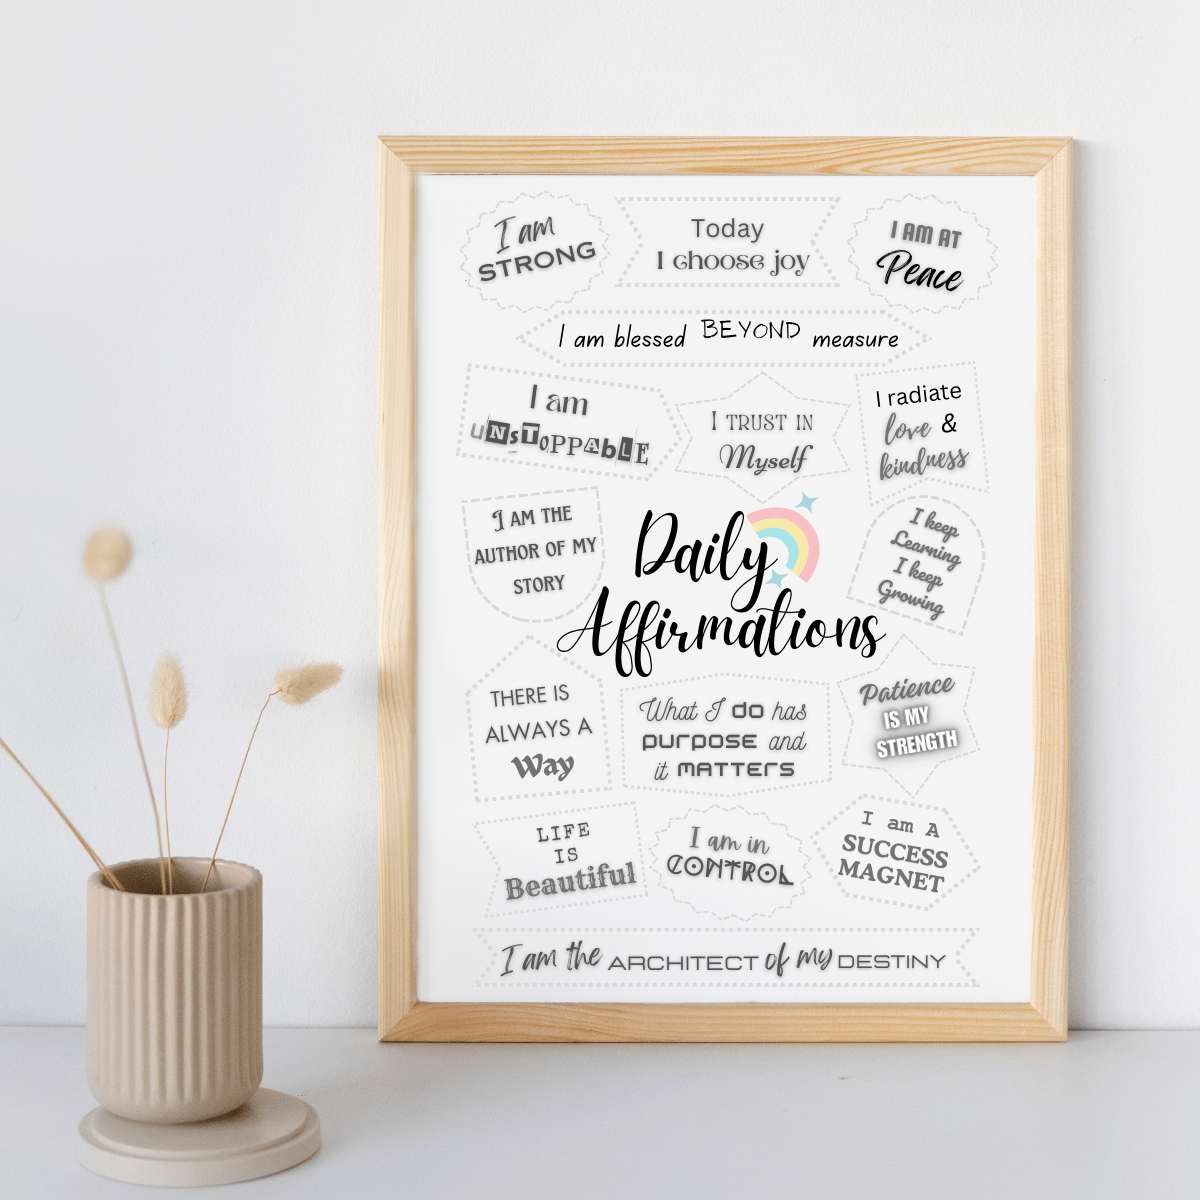 I am
STRONG
Today
I choose joy
I AM AT
Peace
I am blessed BEYOND measure
I am
UNSTOPPABLE
I TRUST IN
Myself
I radiate
love &
kindness
I AM THE
AUTHOR OF MY
STORY
Daily
Affirmations
I keep
Learning
I keep
Growing
THERE IS
ALWAYS A
Way
What I do has
purpose and
it MATTERS
Patience
IS MY
STRENGTH
LIFE
IS
Beautiful
I am in
CONTROL
I am A
SUCCESS
MAGNET
I am the ARCHITECT of my DESTINY